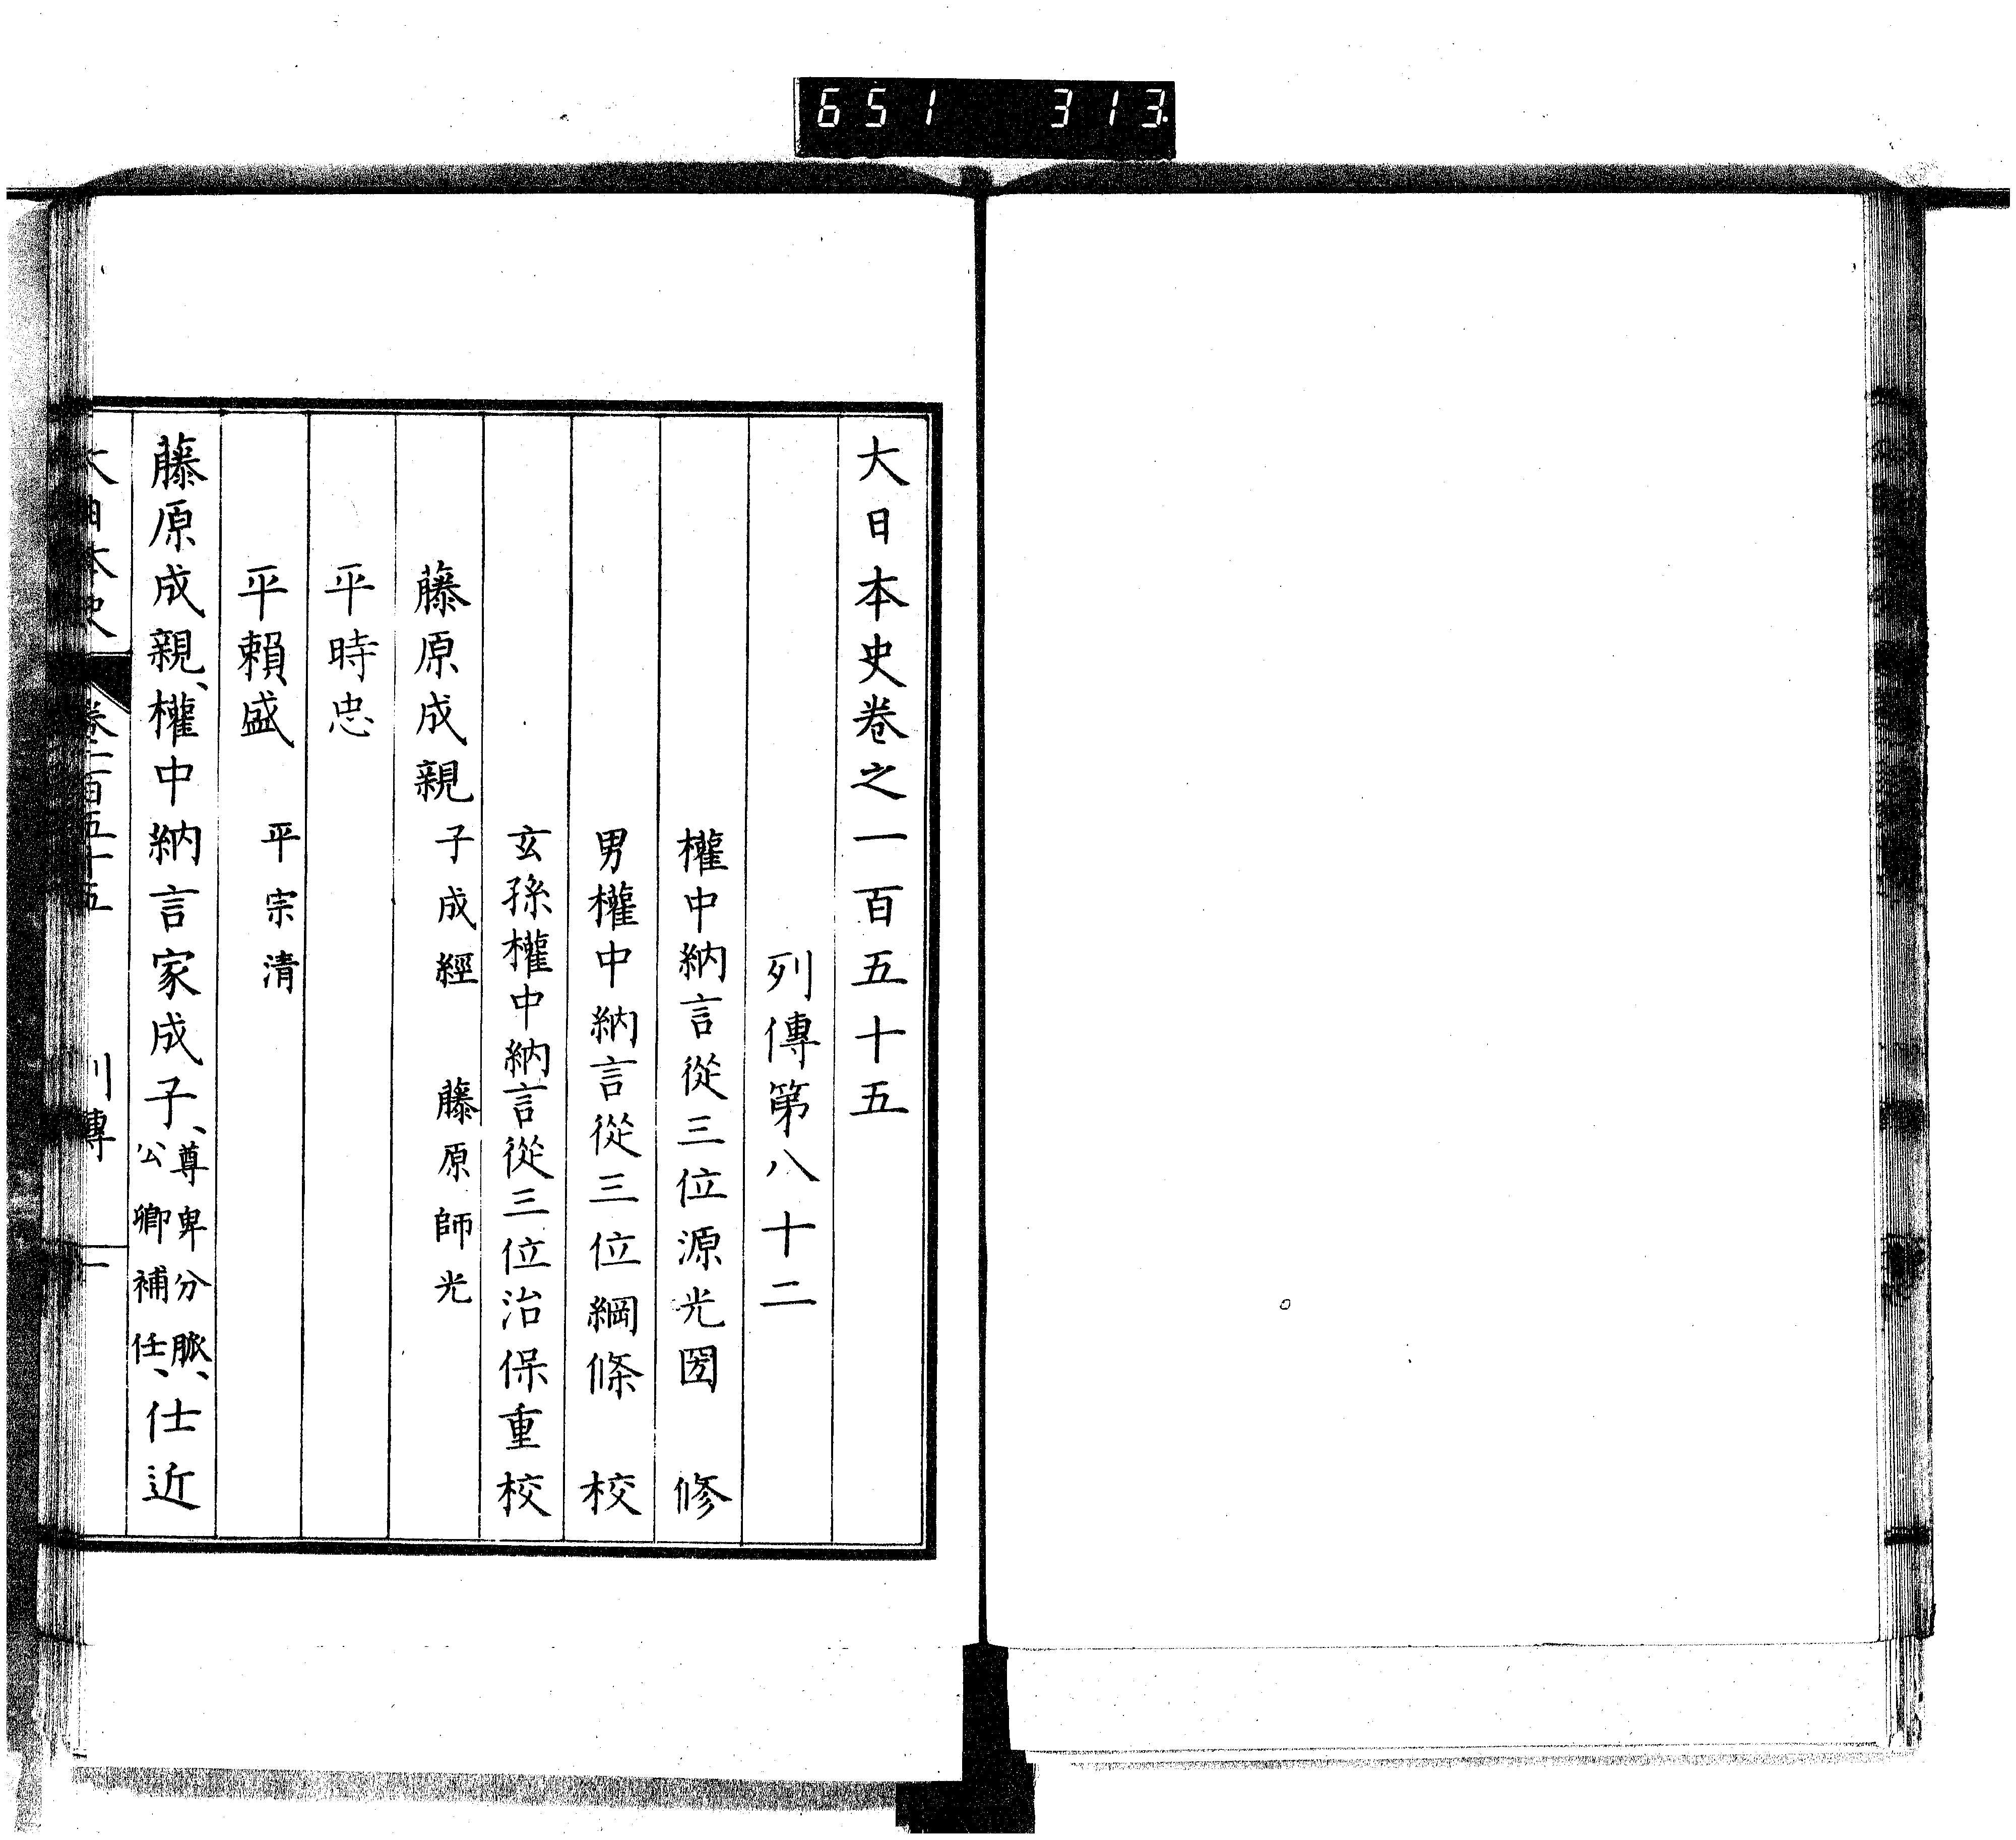 651 313
大日本史卷之一百五十五
列傳第八十二
權中納言從三位源光圀 修
男權中納言從三位綱條 校
玄孫權中納言從三位治保重校
藤原成親 子成經 藤原師光
平時忠
平賴盛 平宗清
藤原成親、權中納言家成子、尊卑分脈、公卿補任、仕近
大日本史 卷一百五十五 列傳 一